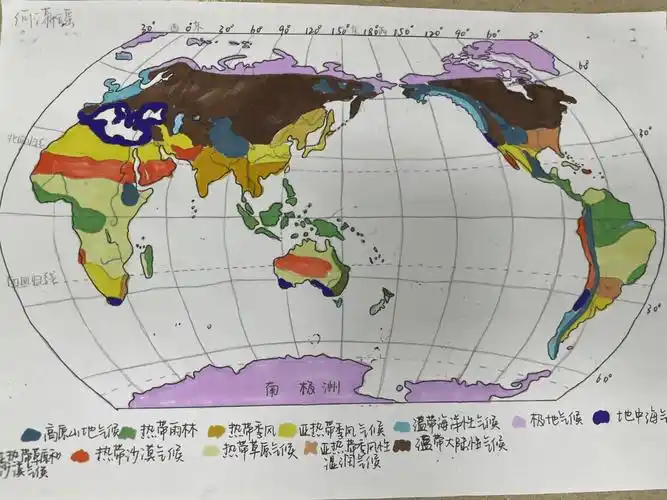 30° 0° 30° 60° 90° 120° 150° 180° 150° 120° 90° 60° 30°
60°
30°
30°
60°
南极洲
高原山地气候 热带雨林 热带季风 亚热带季风气候 温带海洋性气候 极地气候 地中海气
热带沙漠气候 热带草原气候 亚热带季风性 温带大陆性气候
沙漠气候 湿润气候